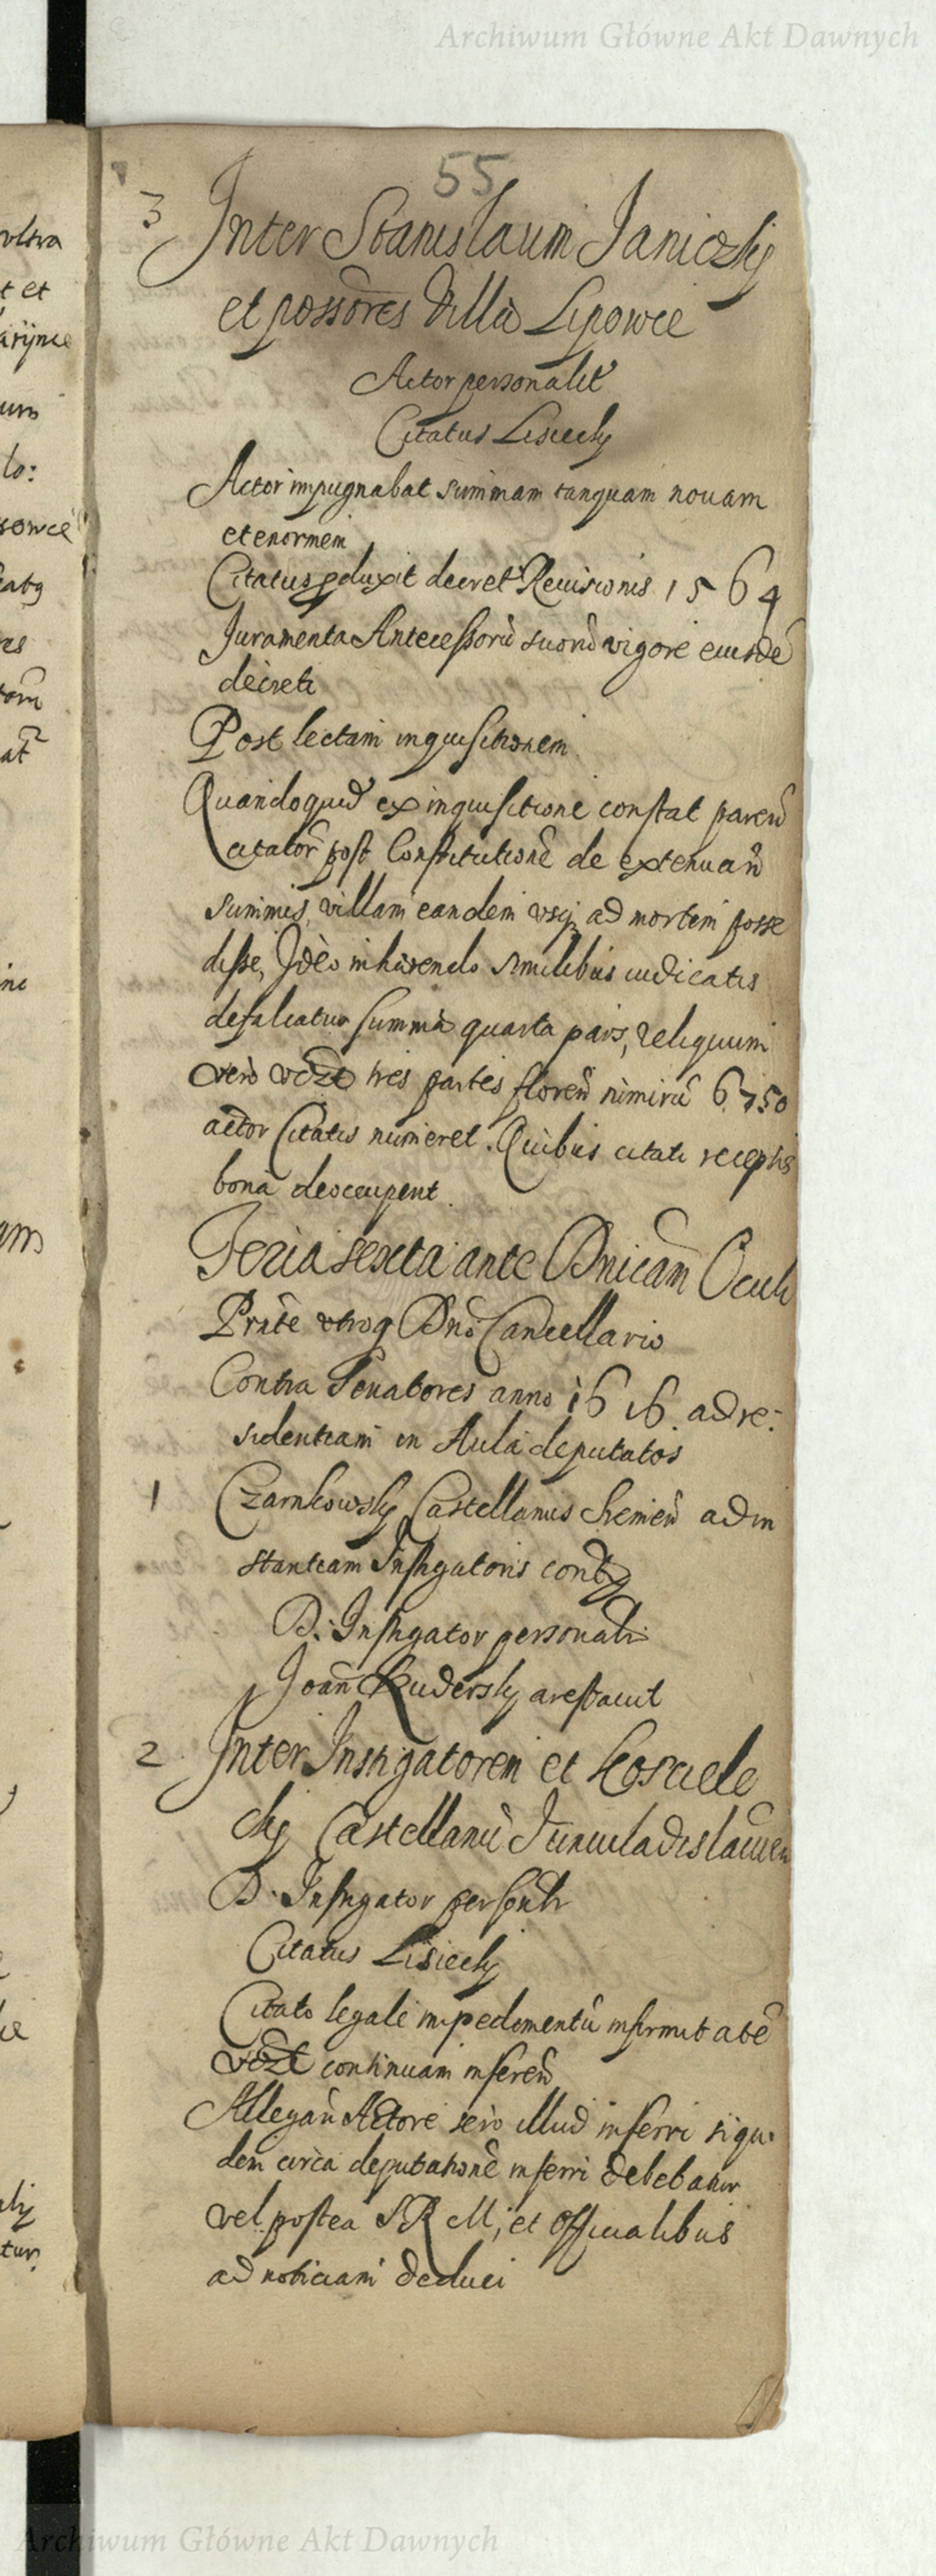 Archiwum Główne Akt Dawnych
55
3 Inter Stanislaum Janiczky
et possores Villa Lipowce
Actor personalit
Citatus Lisiecky
Actor impugnabat summam tanquam novam
et enormem
Citatus pduxit decret Revisionis 1564
Juramenta Antecessorũ suorũ vigore eiusdẽ
decreti
Post lectam inquisitionem
Quandoquid ex inquisitione constat paren̄
citator̃ post Constitutionẽ de extenuan̄
summis, villam eandem usq ad mortem posse
disse, Ideo inhærendo similibus iudicatis
defalcatur summa quarta pars, reliquum
vero vdzt tres partes floren̄ nimirũ 6750
actor Citatis numeret. Quibus citati receptis
bona deoccupent
Feria sexta ante Dnicam Oculi
Prñte utroq Dño Cancellario
Contra Senatores anno 1616 ad re:
sidentiam in Aula deputatos
1 Czarnkowsky Castellanus Cheinen̄ ad in
stantiam Instigatoris contx
D. Instigator personalr
Joan̄ Rudersky arestavit
2 Inter Instigatorem et Kosciele
cky Castellanũ Juniuladislavien
D. Instigator personlr
Citatus Lisiecky
Citato legale impedimentũ infirmitatẽ
vdzt continuam inferen̄
Allegan̄ Actore sero illud inferri siqui
dem circa deputationẽ inferri debebatur
vel postea S R M, et Officialibus
ad noticiam deduci
ultra
t et
arijnce
um
lo:
sowce
eatq
res
at
inc
am
tur
Archiwum Główne Akt Dawnych